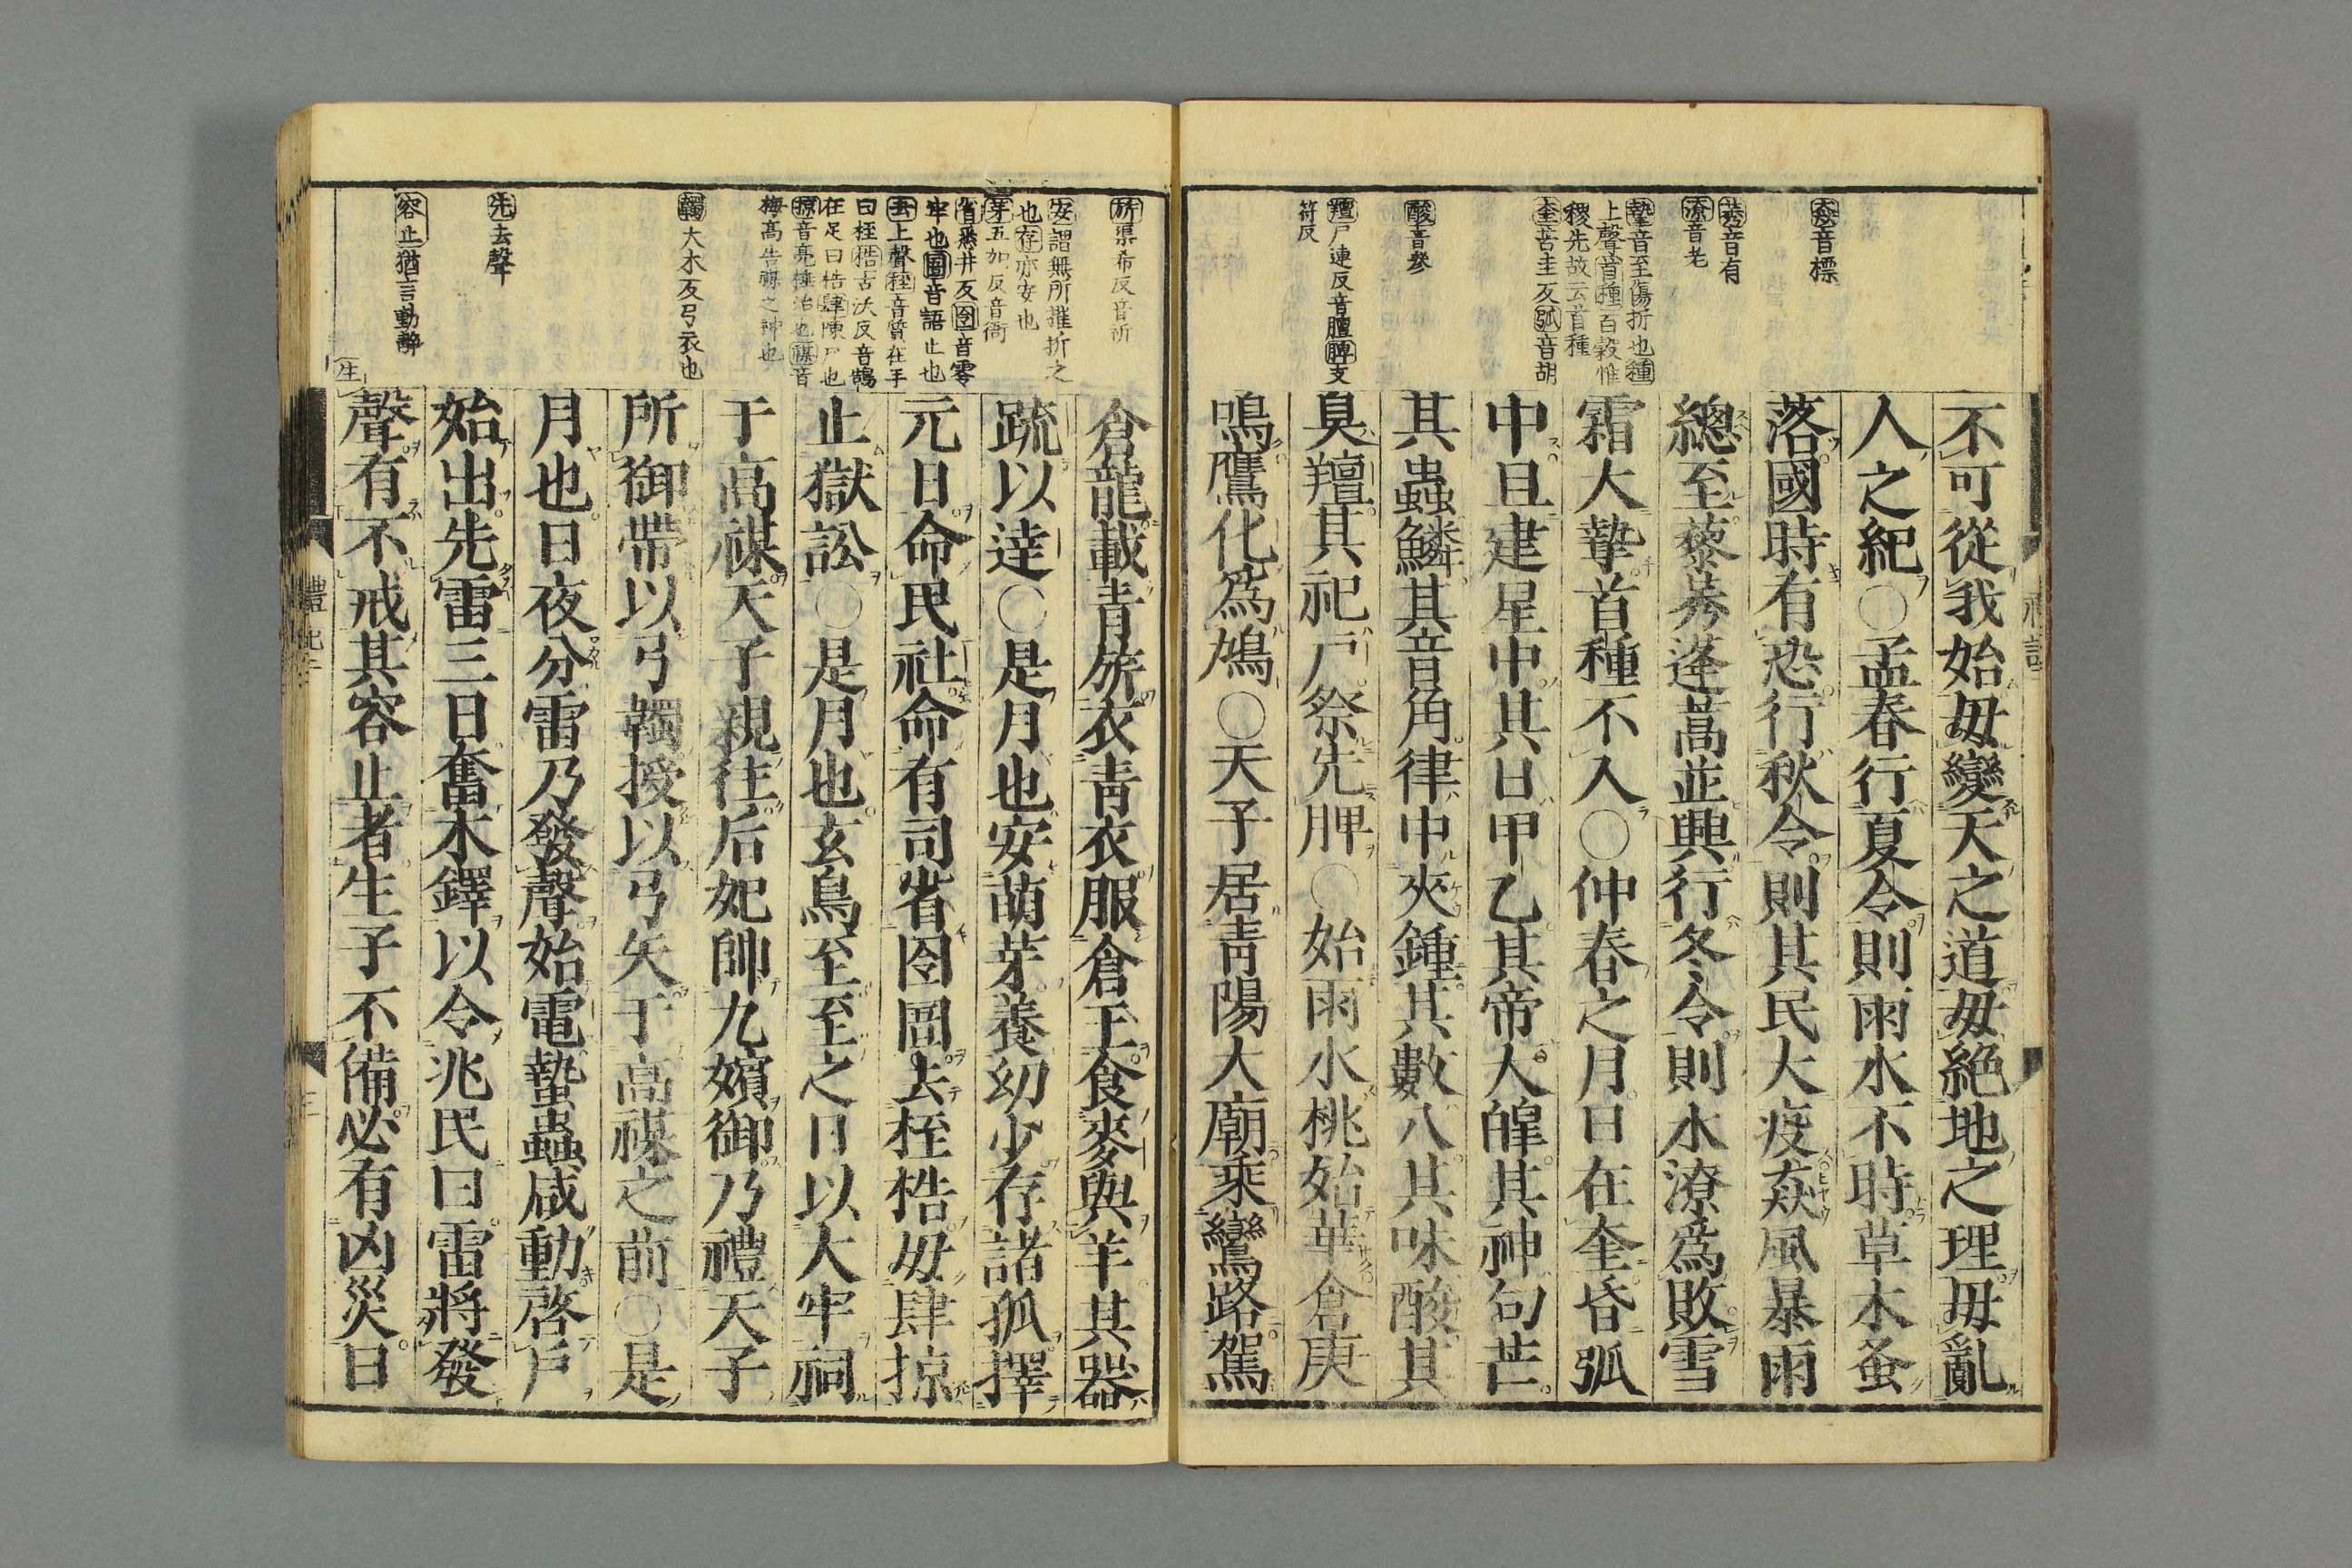 猋音標
莠音有
潦音老
摯音至傷折也種
上聲首種百穀惟
稷先故云首種
奎苦圭反弧音胡
酸音參
羶尸連反音膻脾支
符反
不可從我始毋變天之道毋絶地之理毋亂
人之紀○孟春行夏令則雨水不時草木蚤
落國時有恐行秋令則其民大疫猋風暴雨
總至藜莠蓬蒿並興行冬令則水潦爲敗雪
霜大摯首種不入○仲春之月日在奎昏弧
中旦建星中其日甲乙其帝大皥其神句芒
其蟲鱗其音角律中夾鍾其數八其味酸其
臭羶其祀戸祭先脾○始雨水桃始華倉庚
鳴鷹化爲鳩○天子居靑陽大廟乘鸞路駕
旂渠希反音祈
安謂無所摧折之
也存亦安也
芽五加反音衙
省悉井反囹音零
牢也圄音語止也
去上聲桎音質在手
曰桎梏古沃反音鵠
在足曰梏肆陳尸也
掠音亮捶治也禖音
梅高告禖之神也
韣大木反弓衣也
先去聲
容止猶言動静
倉龍載青旂衣靑衣服倉玉食麥與羊其器
疏以達○是月也安萌芽養幼少存諸孤擇
元日命民社命有司省囹圄去桎梏毋肆掠
止獄訟○是月也玄鳥至至之日以大牢祠
于高禖天子親往后妃帥九嬪御乃禮天子
所御帶以弓韣授以弓矢于高禖之前○是
月也日夜分雷乃發聲始電蟄蟲咸動啓戸
始出先雷三日奮木鐸以令兆民曰雷將發
聲有不戒其容止者生子不備必有凶災日
禮記二
三